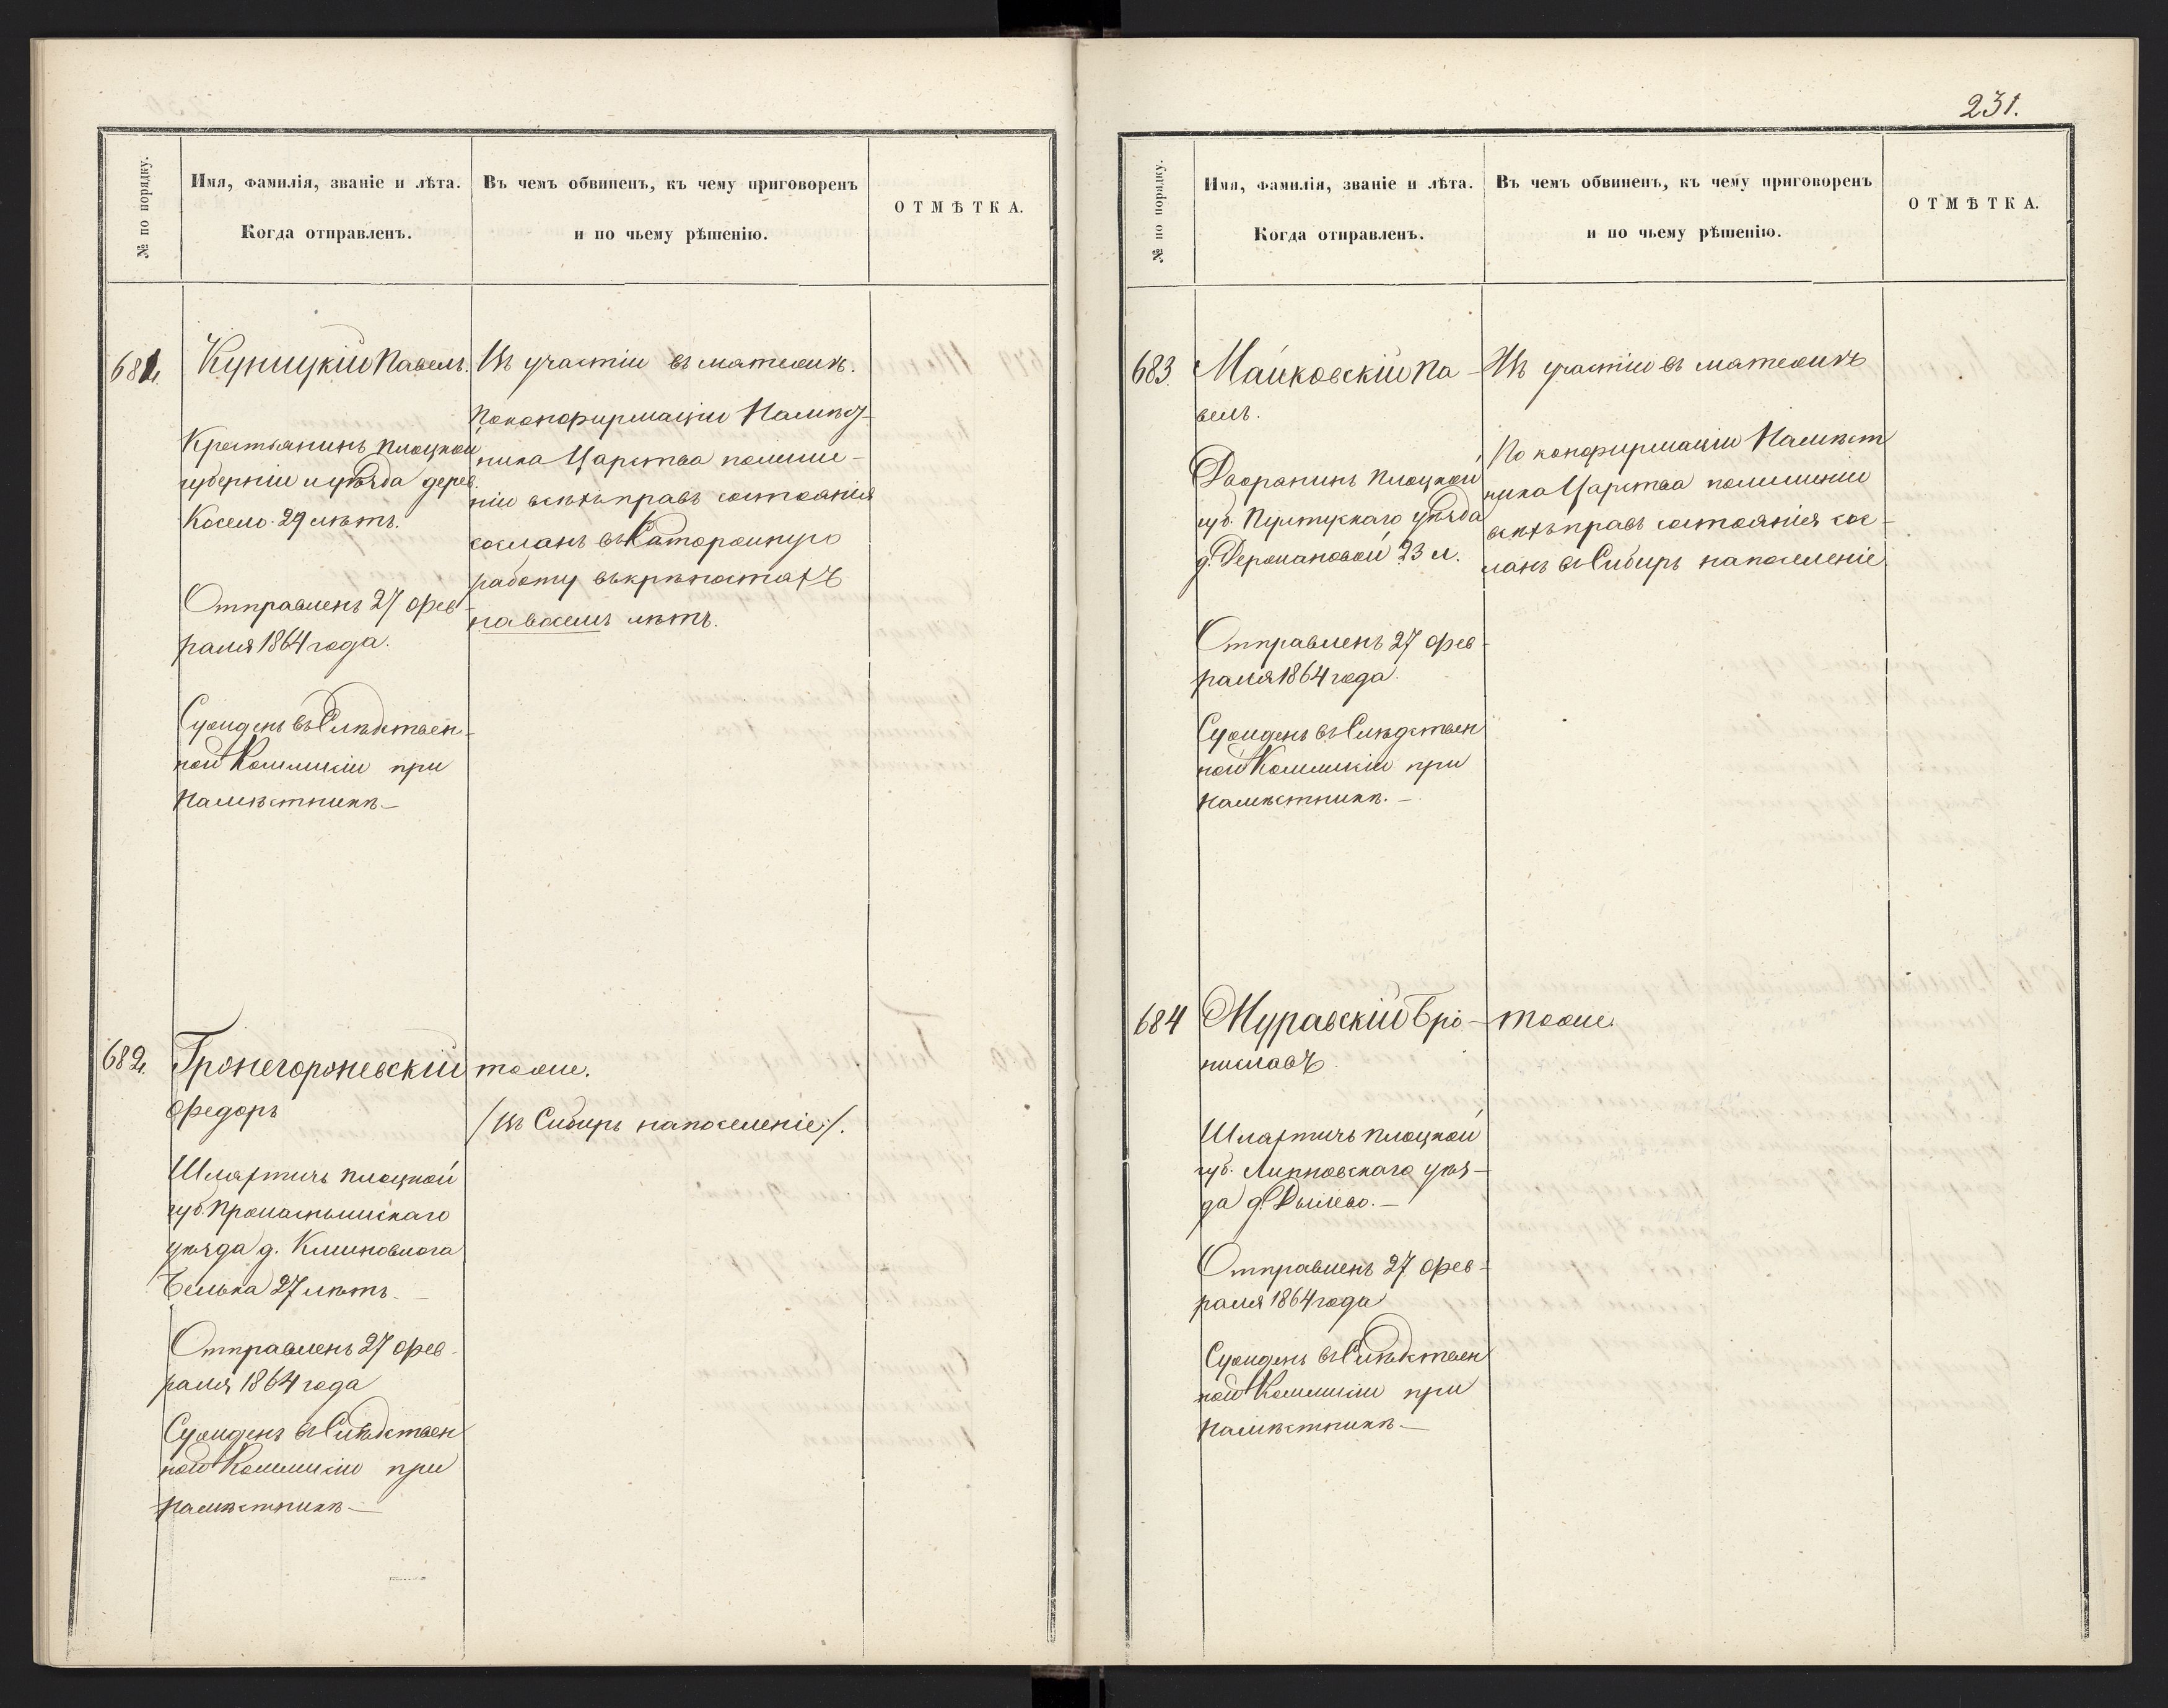 № по порядку.
Имя, фамилія, званіе и лѣта.
Когда отправленъ.
Въ чемъ обвиненъ, къ чему приговоренъ
и по чьему рѣшенію.
ОТМѢТКА.
681.
Куницкій Павелъ.
Крестьянинъ Плоцкой
губерніи и уѣзда дерев.
Косело 29 лѣтъ.
Отправленъ 27 фев-
раля 1864 года.
Сужденъ въ Слѣдствен-
ной Коммисіи при
Намѣстникѣ.—
Въ участіи въ мятежѣ.
По конфирмаціи Намѣст-
ника Царства по лише-
ніи всѣхъ правъ состоянія
сосланъ въ Каторожную
работу въ крѣпостяхъ
на восемь лѣтъ.
682.
Гржегоржевскій
Федоръ
Шляхтичь Плоцкой
губ. Пржаснышскаго
уѣзда д.
Белька 27 лѣтъ.—
Отправленъ 27 фев-
раля 1864 года
Сужденъ въ Слѣдствен
ной Коммисіи при
Намѣстникѣ—
тоже.
/въ Сибирь на поселеніе/.
231.
№ по порядку.
Имя, фамилія, званіе и лѣта.
Когда отправленъ.
Въ чемъ обвиненъ, къ чему приговоренъ
и по чьему рѣшенію.
ОТМѢТКА.
683.
Майковскій Па-
велъ.
Дворянинъ Плоцкой
губ. Пултускаго уѣзда
д. 23 л.
Отправленъ 27 фев-
раля 1864 года.
Сужденъ въ Слѣдствен
ной Коммисіи при
Намѣстникѣ.—
Въ участіи въ мятежѣ
По конфирмаціи Намѣст
ника Царства по лишеніи
всѣхъ правъ состоянія сос-
ланъ въ Сибирь на поселеніе.
684
Муравскій Бро-
ниславъ.
Шляхтичь Плоцкой
губ. Липновскаго уѣз-
да д.
Отправленъ 27 фев-
раля 1864 года
Сужденъ въ Слѣдствен
ной Коммисіи при
Намѣстникѣ—
тоже.